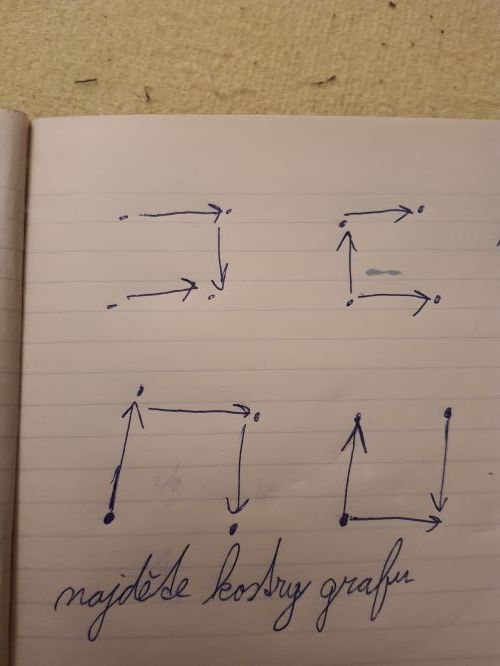 najděte kostry grafu